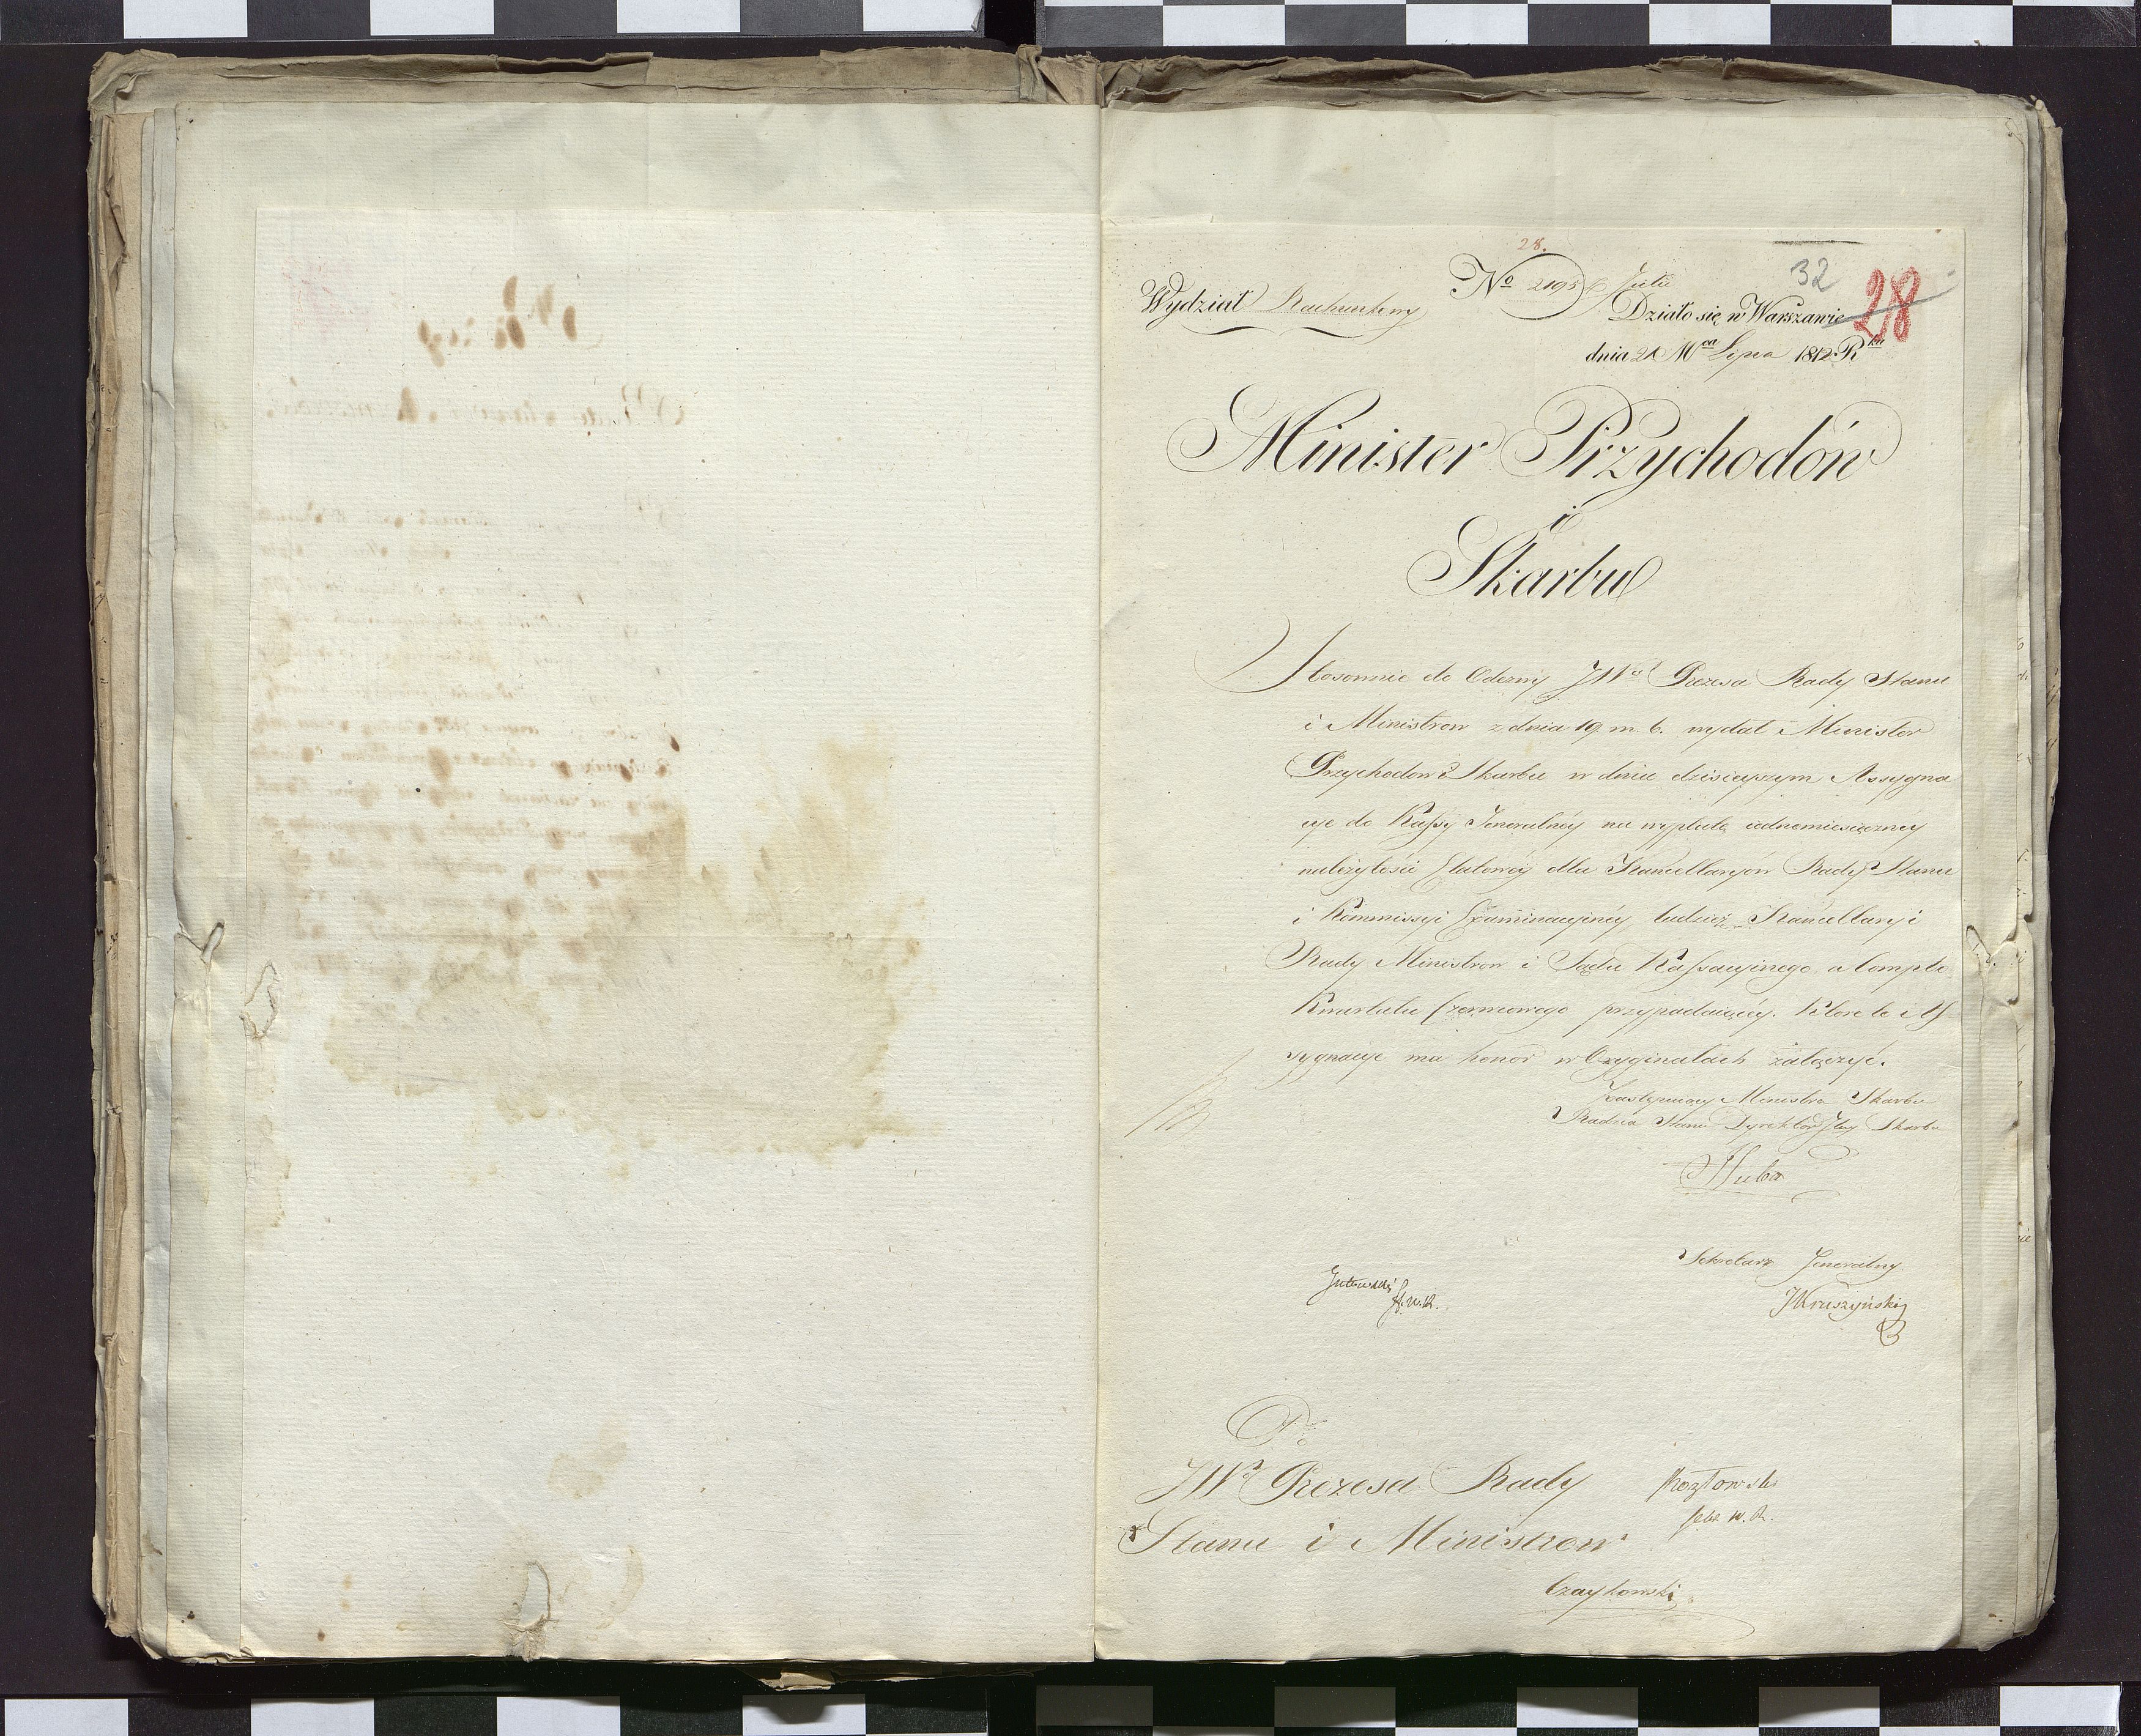 28.
Wydział Rachunkowy
No 2195 Julii
32
28
Działo się w Warszawie
dnia 21 Mca Lipca 1812 Rku
Minister Przychodów
i
Skarbu
Stosownie do Odezwy JWo Prezesa Rady Stanu
i Ministrow z dnia 19 m. b. wydał Minister
Przychodow i Skarbu w dniu dzisieyszym Assygna
cye do Kassy Jeneralnéy na wypłatę iednomiesięczney
należytości Etatowéy dla Kancellaryów Rady Stanu
i Kommissyi Examinacyinéy, tudzież Kancellaryi
Rady Ministrow i Sądu Kassacyinego a Compto
Kwartału Czerwcowego przypadaiącéy. Które to As
sygnacye ma honor w Oryginałach załączyć.
Zastępuiący Ministra Skarbu
Radca Stanu Dyrektor Jlny Skarbu
Sekretarz Jeneralny
JKruszyński
Do
JWo Prezesa Rady
Stanu i Ministrow
Kozłowski
Czaykowski